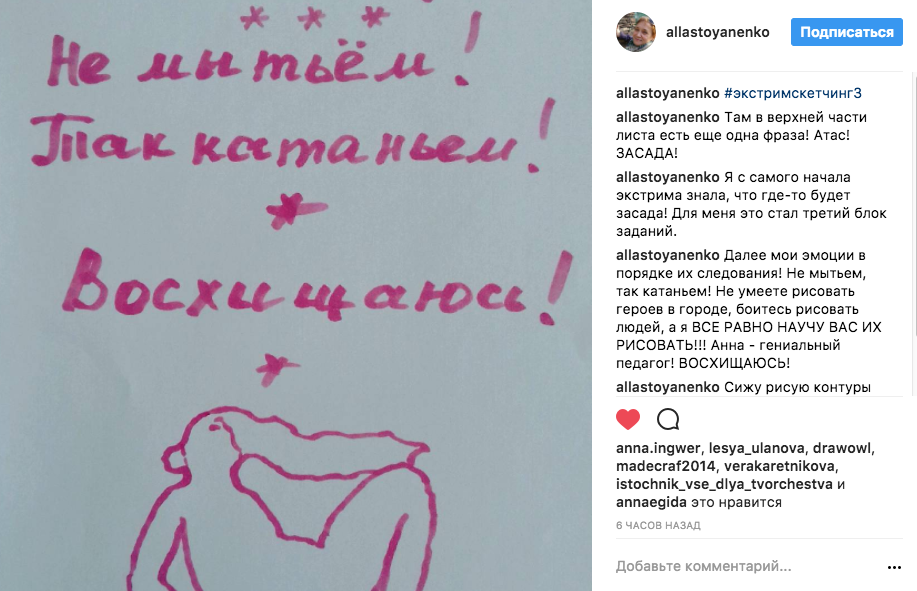 * * *
Не мытьём!
Так катаньем!
*
Восхищаюсь!
*
allastoyanenko
Подписаться
allastoyanenko #экстримскетчинг3
allastoyanenko Там в верхней части
листа есть еще одна фраза! Атас!
ЗАСАДА!
allastoyanenko Я с самого начала
экстрима знала, что где-то будет
засада! Для меня это стал третий блок
заданий.
allastoyanenko Далее мои эмоции в
порядке их следования! Не мытьем,
так катаньем! Не умеете рисовать
героев в городе, боитесь рисовать
людей, а я ВСЕ РАВНО НАУЧУ ВАС ИХ
РИСОВАТЬ!!! Анна - гениальный
педагог! ВОСХИЩАЮСЬ!
allastoyanenko Сижу рисую контуры
anna.ingwer, lesya_ulanova, drawowl,
madecraf2014, verakaretnikova,
istochnik_vse_dlya_tvorchestva и
annaegida это нравится
6 ЧАСОВ НАЗАД
Добавьте комментарий...